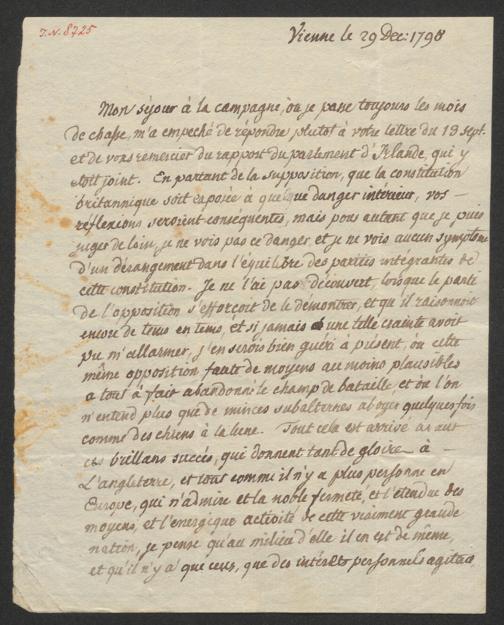 I.N. 8725
Vienne le 29 Dec: 1798
Mon séjour à la campagne, ou je passe toujours les mois
de chasse, m'a empeché de répondre plutot à votre lettre du 13 sept.
et de vous remercier du rapport du parlement d'Irlande, qui y
etoit joint. En partant de la supposition, que la constitution
britannique soit exposée à quelque danger intérieur, vos
réflexions seroient conséquentes, mais pour autant que je puis
juger de loin, je ne vois pas ce danger, et je ne vois aucun symptome
d'un dérangement dans l'équilibre des parties integrantes de
cette constitution. Je ne l'ai pas découvert, lorsque le parti
de l'opposition s'efforçoit de le démontrer, et qu'il raisonnoit
encore de tems en tems, et si jamais une telle crainte avoit
pu m'allarmer, j'en serois bien guéri à présent, ou cette
même opposition faute de moyens au moins plausibles
a tout à fait abandonné le champ de bataille, et ou l'on
n'entend plus que de minces subalternes aboyer quelquefois
comme des chiens à la lune. Tout cela est arrivé avant
ces brillans succès, qui donnent tant de gloire à
L'angleterre, et tout comme il n'y a plus personne en
Europe, qui n'admire et la noble fermeté, et l'étendue des
moyens, et l'energique activité de cette vraiment grande
nation, je pense qu'au milieu d'elle il en est de même,
et qu'il n'y a que ceux, que des intérêts personnels agitent